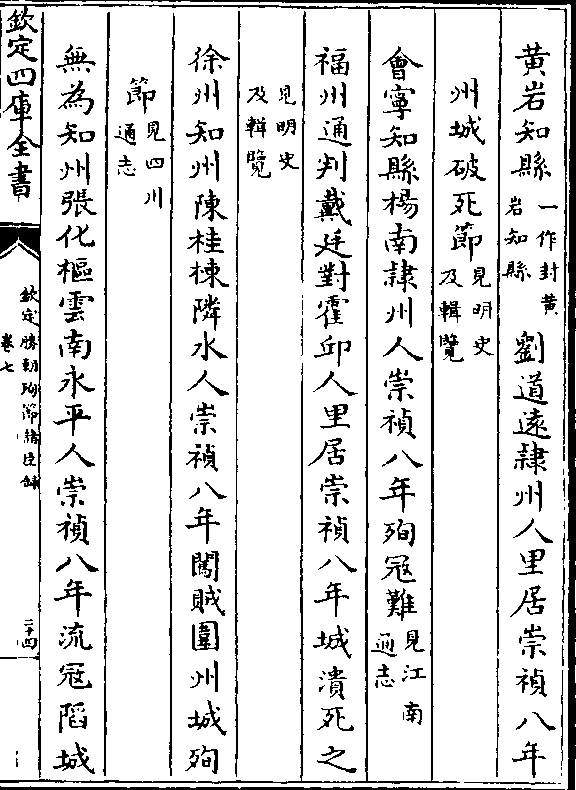 黄岩知縣一作封黄
岩知縣劉道遠隷州人里居崇禎八年
州城破死節見明史
及輯覽
會寧知縣楊南隷州人崇禎八年殉冦難見江南
通志
福州通判戴廷對霍邱人里居崇禎八年城潰死之
見明史
及輯覽
徐州知州陳桂棟隣水人崇禎八年闖賊圍州城殉
節見四川
通志
無為知州張化樞雲南永平人崇禎八年流冦陷城
欽定四庫全書
欽定勝朝殉節諸臣錄
卷七
二十四